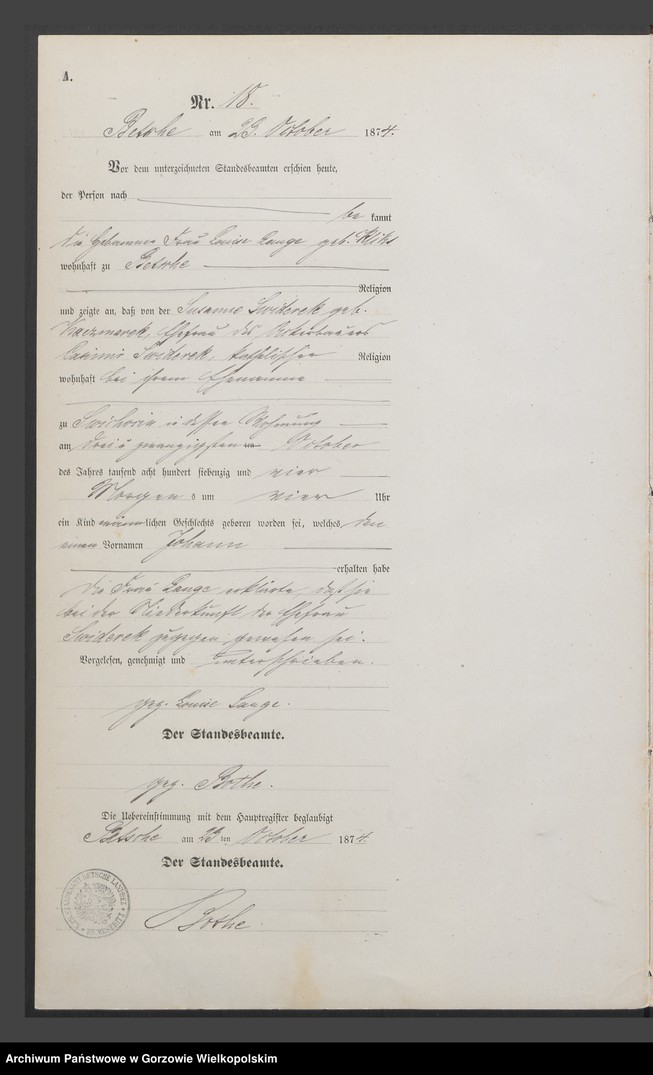 A.
Nr. 18.
Betsche am 23. October 1874.
Vor dem unterzeichneten Standesbeamten erschien heute,
der Person nach
be kannt
die Hebamme Frau Louise Lange geb.
wohnhaft zu Betsche
Religion
und zeigte an, daß von der Susanne Swiderek geb.
Kaczmarek, Ehefrau des Ackerbauers
Casimir Swiderek, katholischer Religion
wohnhaft bei ihrem Ehemanne
zu in dessen Wohnung
am drei u zwanzigsten October
des Jahres tausend acht hundert siebenzig und vier
Morgens um vier Uhr
ein Kind männlichen Geschlechts geboren worden sei, welches den
einen Vornamen Johann
erhalten habe
Die Frau Lange erklärte, daß sie
bei der Niederkunft der Ehefrau
Swiderek zugegen gewesen sei.
Vorgelesen, genehmigt und unterschrieben.
gez. Louise Lange.
Der Standesbeamte.
gez. Bothe.
Die Uebereinstimmung mit dem Hauptregister beglaubigt
Betsche am 23 ten October 1874.
Der Standesbeamte.
Bothe
Archiwum Państwowe w Gorzowie Wielkopolskim